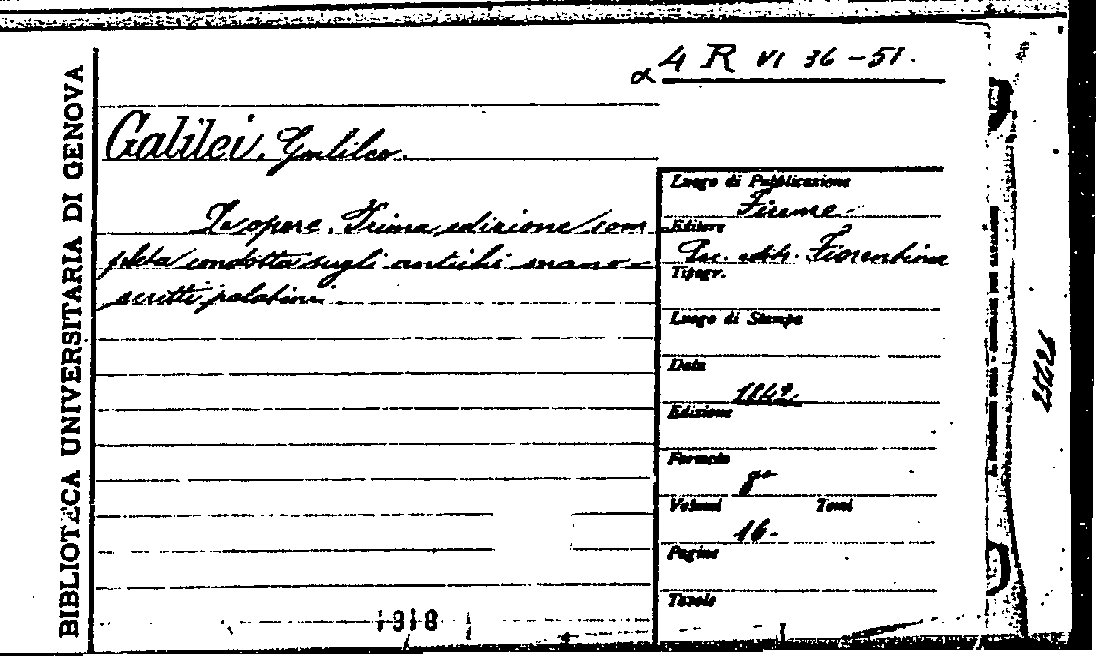 4 R VI 36-51.
BIBLIOTECA UNIVERSITARIA DI GENOVA
Galilei, Galileo.
Le opere. Prima edizione com
pleta condotta sugli antichi mano=
scritti palatini
Luogo di Pubblicazione
Firenze.
Editore
Soc. edit. Fiorentina
Tipogr.
Luogo di Stampa
Data
Edizione
Formato
8°
Volumi Tomi
16.
Pagine
Tavole
1818